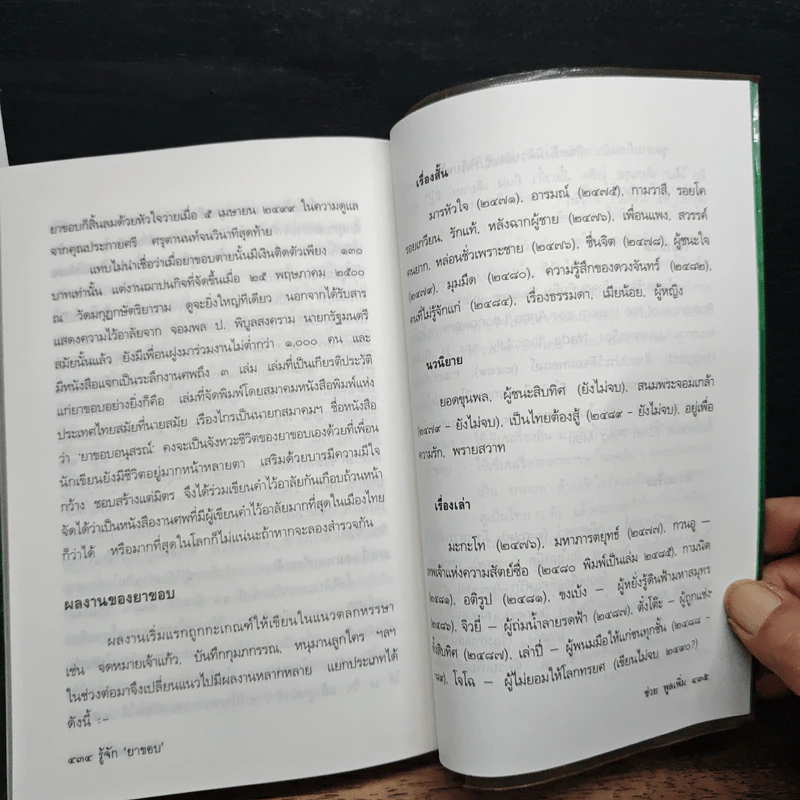 ยาขอบก็สิ้นลมด้วยหัวใจวายเมื่อ ๕ เมษายน ๒๔๙๙ ในความดูแล
จากคุณประกายศรี ศรุตานนท์จนวินาทีสุดท้าย
แทบไม่น่าเชื่อว่าเมื่อยาขอบตายนั้นมีเงินติดตัวเพียง ๑๓๐
บาทเท่านั้น แต่งานฌาปนกิจที่จัดขึ้นเมื่อ ๒๕ พฤษภาคม ๒๕๐๐
ณ วัดมกุฏกษัตริยาราม ดูจะยิ่งใหญ่ทีเดียว นอกจากได้รับสาร
แสดงความไว้อาลัยจาก จอมพล ป. พิบูลสงคราม นายกรัฐมนตรี
สมัยนั้นแล้ว ยังมีเพื่อนฝูงมาร่วมงานไม่ต่ำกว่า ๑,๐๐๐ คน และ
มีหนังสือแจกเป็นระลึกงานศพถึง ๓ เล่ม เล่มที่เป็นเกียรติประวัติ
แก่ยาขอบอย่างยิ่งก็คือ เล่มที่จัดพิมพ์โดยสมาคมหนังสือพิมพ์แห่ง
ประเทศไทยสมัยที่นายสมัย เรืองไกรเป็นนายกสมาคมฯ ชื่อหนังสือ
ว่า 'ยาขอบอนุสรณ์' คงจะเป็นจังหวะชีวิตของยาขอบเองด้วยที่เพื่อน
นักเขียนยังมีชีวิตอยู่มากหน้าหลายตา เสริมด้วยบารมีความมีใจ
กว้าง ชอบสร้างแต่มิตร จึงได้ร่วมเขียนคำไว้อาลัยกันเกือบถ้วนหน้า
จัดได้ว่าเป็นหนังสืองานศพที่มีผู้เขียนคำไว้อาลัยมากที่สุดในเมืองไทย
ก็ว่าได้ หรือมากที่สุดในโลกก็ไม่แน่นะถ้าหากจะลองสำรวจกัน
ผลงานของยาขอบ
ผลงานเริ่มแรกถูกกะเกณฑ์ให้เขียนในแนวตลกหรรษา
เช่น จดหมายเจ้าแก้ว, บันทึกกุมภกรรณ, หนุมานลูกใคร ฯลฯ
ในช่วงต่อมาจึงเปลี่ยนแนวไปมีผลงานหลากหลาย แยกประเภทได้
ดังนี้ :-
๔๓๔ รู้จัก 'ยาขอบ'
เรื่องสั้น
มารหัวใจ (๒๔๗๑), อารมณ์ (๒๔๗๕), กามวาสี, รอยโค
รอยเกวียน, รักแท้, หลังฉากผู้ชาย (๒๔๗๖), เพื่อนแพง, สวรรค์
คนยาก, หล่อนชั่วเพราะชาย (๒๔๗๖), ชื่นจิต (๒๔๗๘), ผู้ชนะใจ
(๒๔๗๙), มุมมืด (๒๔๘๐), ความรู้สึกของดวงจันทร์ (๒๔๘๒),
คนที่ไม่รู้จักแก่ (๒๔๘๔), เรื่องธรรมดา, เมียน้อย, ผู้หญิง
นวนิยาย
ยอดขุนพล, ผู้ชนะสิบทิศ (ยังไม่จบ), สนมพระจอมเกล้า
(๒๔๗๙ – ยังไม่จบ), เป็นไทยต้องสู้ (๒๔๘๙ – ยังไม่จบ), อยู่เพื่อ
ความรัก, พรายสวาท
เรื่องเล่า
มะกะโท (๒๔๗๖), มหาภารตยุทธ์ (๒๔๗๗), กวนอู –
เทพเจ้าแห่งความสัตย์ซื่อ (๒๔๘๐ พิมพ์เป็นเล่ม ๒๔๘๕), กามนิต
(๒๔๘๑), อติรูป (๒๔๘๑), ขงเบ้ง – ผู้หยั่งรู้ดินฟ้ามหาสมุทร
๒๔๘๖), จิวยี่ – ผู้ถ่มน้ำลายรดฟ้า (๒๔๘๗), ตั๋งโต๊ะ – ผู้ถูกแช่ง
ทั้งสิบทิศ (๒๔๘๗), เล่าปี่ – ผู้พนมมือให้แก่ชนทุกชั้น (๒๔๘๘ –
๘๙), โจโฉ – ผู้ไม่ยอมให้โลกทรยศ (เขียนไม่จบ ๒๔๙๐?)
ช่วย พูลเพิ่ม ๔๓๕